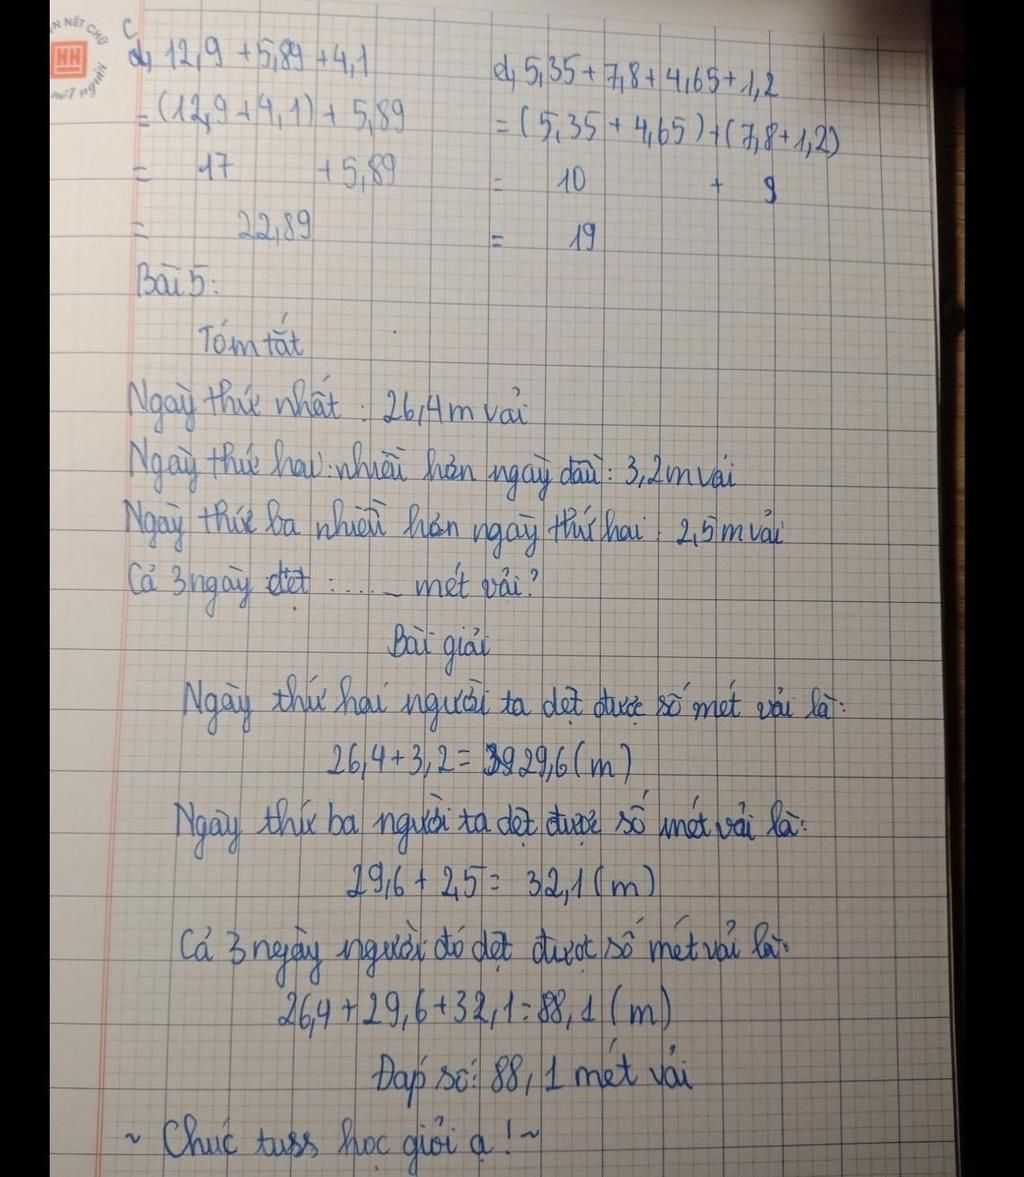 N NÉT CHỮ
HN
một người
c
d, 12,9 + 5,89 + 4,1
= (12,9 + 4,1) + 5,89
= 17 + 5,89
= 22,89
d, 5,35 + 7,8 + 4,65 + 1,2
= (5,35 + 4,65) + (7,8 + 1,2)
= 10 + 9
= 19
Bài 5:
Tóm tắt
Ngày thứ nhất : 26,4m vải
Ngày thứ hai : nhiều hơn ngày đầu : 3,2m vải
Ngày thứ ba nhiều hơn ngày thứ hai : 2,5m vải
Cả 3 ngày dệt : ..... mét vải?
Bài giải
Ngày thứ hai người ta dệt được số mét vải là:
26,4 + 3,2 = 29,6 (m)
Ngày thứ ba người ta dệt được số mét vải là:
29,6 + 2,5 = 32,1 (m)
Cả 3 ngày người đó dệt được số mét vải là:
26,4 + 29,6 + 32,1 = 88,1 (m)
Đáp số: 88,1 mét vải
~ Chúc tuss học giỏi ạ! ~